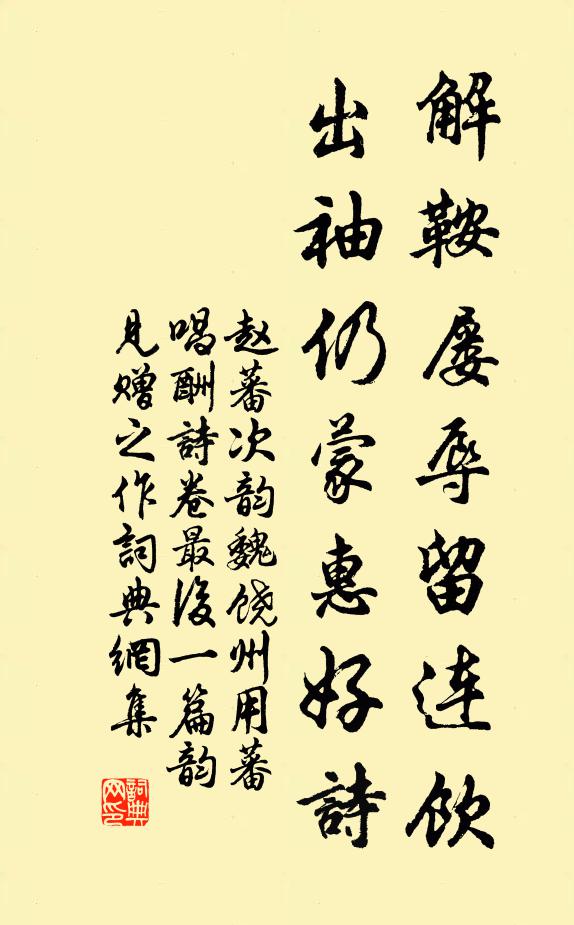 解鞍屡辱留连饮
出袖仍蒙惠好詩
赵蕃次韵魏饶州用蕃
唱酬詩卷最後一篇韵
見贈之作詞典網集
詞典
网印